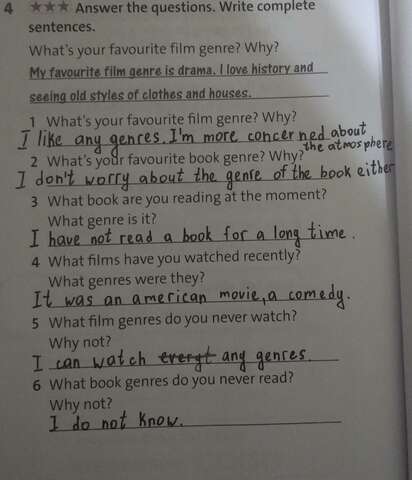 4 ★★★ Answer the questions. Write complete
sentences.
What's your favourite film genre? Why?
My favourite film genre is drama. I love history and
seeing old styles of clothes and houses.
1 What's your favourite film genre? Why?
I like any genres. I'm more concerned about
the atmosphere
2 What's your favourite book genre? Why?
I don't worry about the genre of the book either
3 What book are you reading at the moment?
What genre is it?
I have not read a book for a long time.
4 What films have you watched recently?
What genres were they?
It was an american movie, a comedy.
5 What film genres do you never watch?
Why not?
I can watch everyt any genres.
6 What book genres do you never read?
Why not?
I do not know.